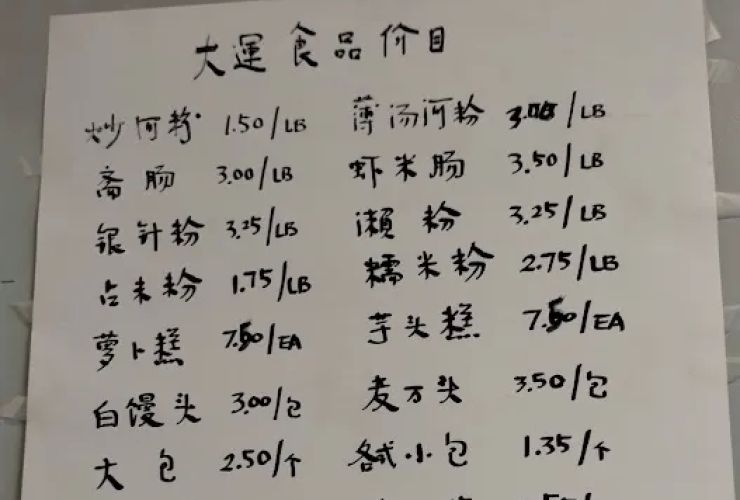 大運食品价目
炒河粉 1.50/LB 薄汤河粉 3.00/LB
斋肠 3.00/LB 虾米肠 3.50/LB
银针粉 3.25/LB 瀨粉 3.25/LB
占未粉 1.75/LB 糯米粉 2.75/LB
萝卜糕 7.50/EA 芋头糕 7.50/EA
白馒头 3.00/包 麦万头 3.50/包
大包 2.50/个 各式小包 1.35/个